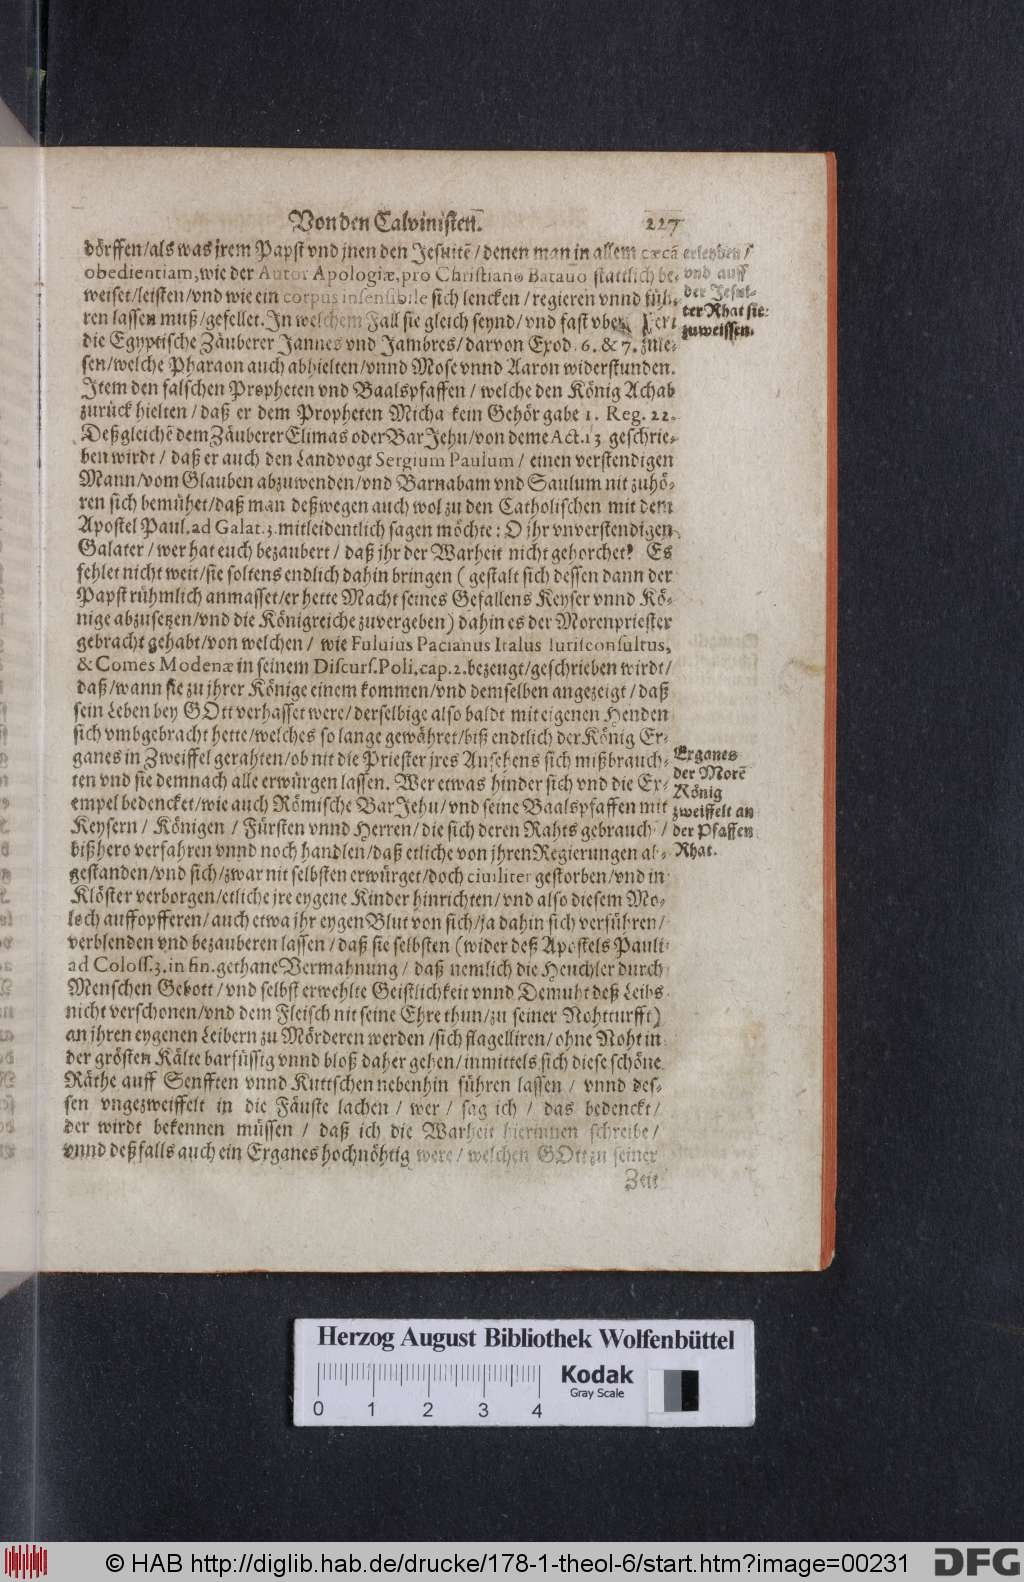 Von den Calvinisten. 227
dörffen/als was jrem Papst vnd jnen den Jesuitē/denen man in allem cæcā
obedientiam, wie der Autor Apologiæ, pro Christiano Batauo stattlich be-
weiset/leisten/vnd wie ein corpus insensibile sich lencken/regieren vnnd füh-
ren lassen muß/gefellet. In welchem Fall sie gleich seynd/vnd fast
die Egyptische Zäuberer Jannes vnd Jambres/darvon Exod. 6. & 7. zule-
sen/welche Pharaon auch abhielten/vnnd Mose vnnd Aaron widerstunden.
Item den falschen Propheten vnd Baalspfaffen/welche den König Achab
zurück hielten/daß er dem Propheten Micha kein Gehör gabe 1. Reg. 22.
Deßgleichē dem Zäuberer Elimas oder Bar Jehu/von deme Act. 13 geschrie-
ben wirdt/daß er auch den Landvogt Sergium Paulum/einen verstendigen
Mann/vom Glauben abzuwenden/vnd Barnabam vnd Saulum nit zuhö-
ren sich bemühet/daß man deßwegen auch wol zu den Catholischen mit dem
Apostel Paul. ad Galat. 3. mitleidentlich sagen möchte: O jhr vnverstendigen
Galater/wer hat euch bezaubert/daß jhr der Warheit nicht gehorchet? Es
fehlet nicht weit/sie soltens endlich dahin bringen (gestalt sich dessen dann der
Papst rühmlich anmasset/er hette Macht seines Gefallens Keyser vnnd Kö-
nige abzusetzen/vnd die Königreiche zuvergeben) dahin es der Morenpriester
gebracht gehabt/von welchen/wie Fuluius Pacianus Italus Iurisconsultus,
& Comes Modenæ in seinem Discurs. Poli. cap. 2. bezeugt/geschrieben wirdt/
daß/wann sie zu jhrer Könige einem kommen/vnd demselben angezeigt/daß
sein Leben bey GOtt verhasset were/derselbige also baldt mit eigenen Henden
sich vmbgebracht hette/welches so lange gewähret/biß endtlich der König Er-
ganes in Zweiffel gerahten/ob nit die Priester jres Ansehens sich mißbrauch-
ten vnd sie demnach alle erwürgen lassen. Wer etwas hinder sich vnd die Ex-
empel bedencket/wie auch Römische Bar Jehu/vnd seine Baalspfaffen mit
Keysern/Königen/Fürsten vnnd Herren/die sich deren Rahts gebrauch/
bißhero verfahren vnnd noch handlen/daß etliche von jhren Regierungen ab-
gestanden/vnd sich/zwar nit selbsten erwürget/doch ciuiliter gestorben/vnd in
Klöster verborgen/etliche jre eygene Kinder hinrichten/vnd also diesem Mo-
loch auffopfferen/auch etwa jhr eygen Blut von sich/ja dahin sich verführen/
verblenden vnd bezauberen lassen/daß sie selbsten (wider deß Apostels Pauli
ad Coloss. 3. in fin. gethane Vermahnung/daß nemlich die Heuchler durch
Menschen Gebott/vnd selbst erwehlte Geistlichkeit vnnd Demuht deß Leibs
nicht verschonen/vnd dem Fleisch nit seine Ehre thun/zu seiner Nohtturfft)
an jhren eygenen Leibern zu Mörderen werden/sich flagelliren/ohne Noht in
der grösten Kälte barfüssig vnnd bloß daher gehen/inmittels sich diese schöne
Räthe auff Senfften vnnd Kuttschen nebenhin führen lassen/vnnd des-
sen vngezweiffelt in die Fäuste lachen/wer/sag ich/das bedenckt/
der wirdt bekennen müssen/daß ich die Warheit hierinnen schreibe/
vnnd deßfalls auch ein Erganes hochnöhtig were/welchen GOtt zu seiner
Zeit
erletzben/
vnd auff
der Jesui-
ter Rhat sie
zuweissen.
Erganes
der Morē
König
zweiffelt an
der Pfaffen
Rhat.
Herzog August Bibliothek Wolfenbüttel
Kodak
Gray Scale
0 1 2 3 4
© HAB http://diglib.hab.de/drucke/178-1-theol-6/start.htm?image=00231
DFG